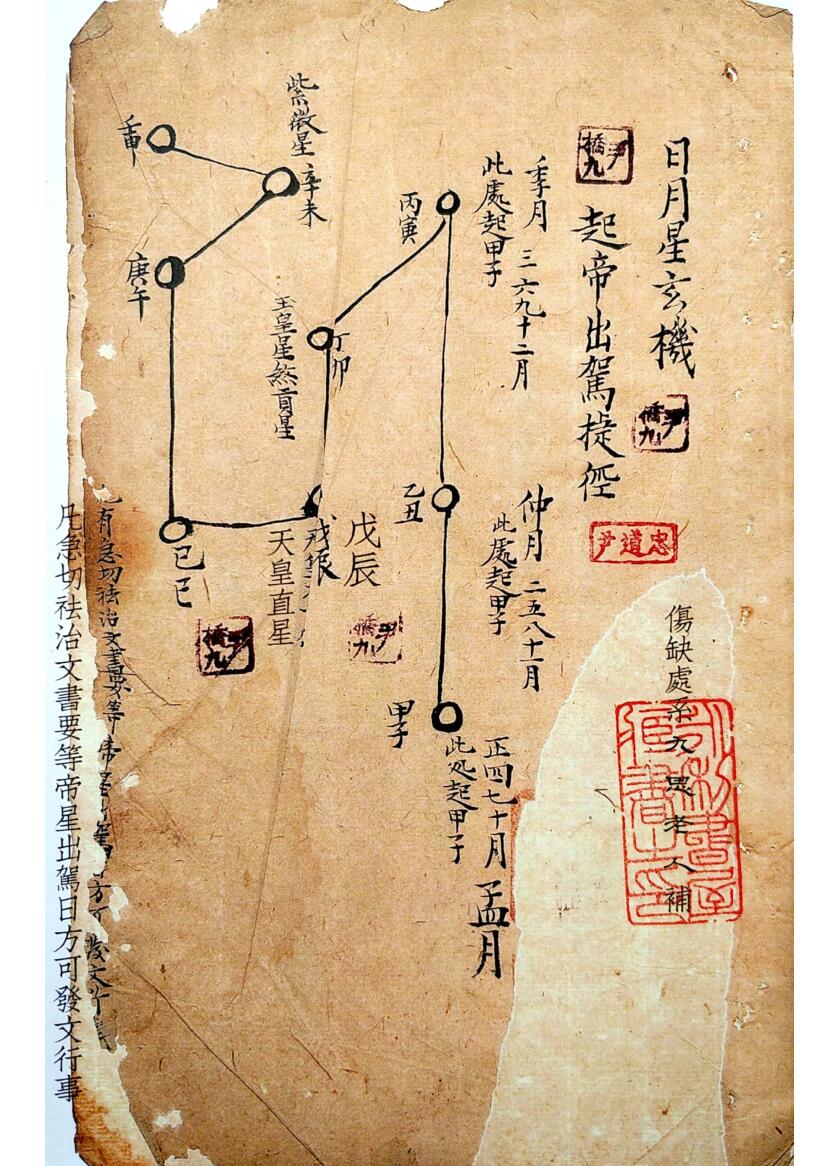 日月星玄機
起帝出駕捷徑
忠道尹
傷缺處系九思老人補
季月 三六九十二月
此處起甲子
丙寅
仲月 二五八十一月
此處起甲子
乙丑
孟月
正四七十月
此処起甲子
甲子
丁卯
玉皇星煞貢星
戊辰
天皇直星
紫微星
辛未
壬申
庚午
己巳
尹橋九
尹橋九
尹橋九
尹橋九
凡有急切祛治文書要等帝
凡急切祛治文書要等帝星出駕日方可發文行事